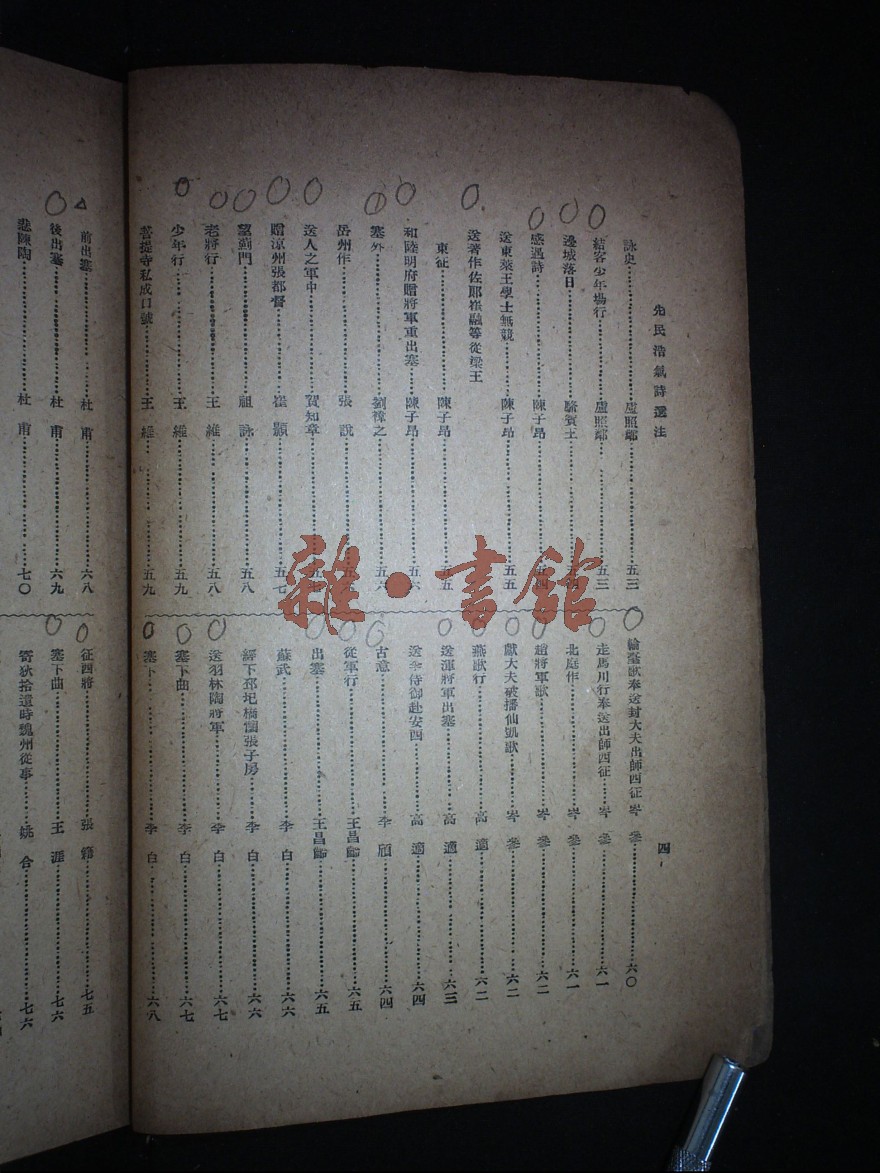 先民浩氣詩選注
四
詠史 盧照鄰 五三
結客少年場行 盧照鄰 五三
邊城落日 駱賓王
感遇詩 陳子昂
送東萊王學士無競 陳子昂 五五
送著作佐郎崔融等從梁王
東征 陳子昂 五五
和陸明府贈將軍重出塞 陳子昂 五六
塞外 劉禕之 五六
岳州作 張說
送人之軍中 賀知章
贈涼州張都督 崔顥 五七
望薊門 祖詠 五八
老將行 王維 五八
少年行 王維 五九
菩提寺私成口號 王維 五九
輪臺歌奉送封大夫出師西征 岑參 六〇
走馬川行奉送出師西征 岑參 六一
北庭作 岑參 六一
趙將軍歌 岑參 六二
獻大夫破播仙凱歌 岑參 六二
燕歌行 高適 六二
送渾將軍出塞 高適 六三
送李侍御赴安西 高適 六四
古意 李頎 六四
從軍行 王昌齡 六五
出塞 王昌齡 六五
蘇武 李白 六六
經下邳圯橋懷張子房 李白 六六
送羽林陶將軍 李白 六七
塞下曲 李白 六七
塞下 李白 六八
前出塞 杜甫 六八
後出塞 杜甫 六九
悲陳陶 杜甫 七〇
征西將 張籍 七五
塞下曲 王涯 七六
寄狄拾遺時魏州從事 姚合 七六
雜·書館